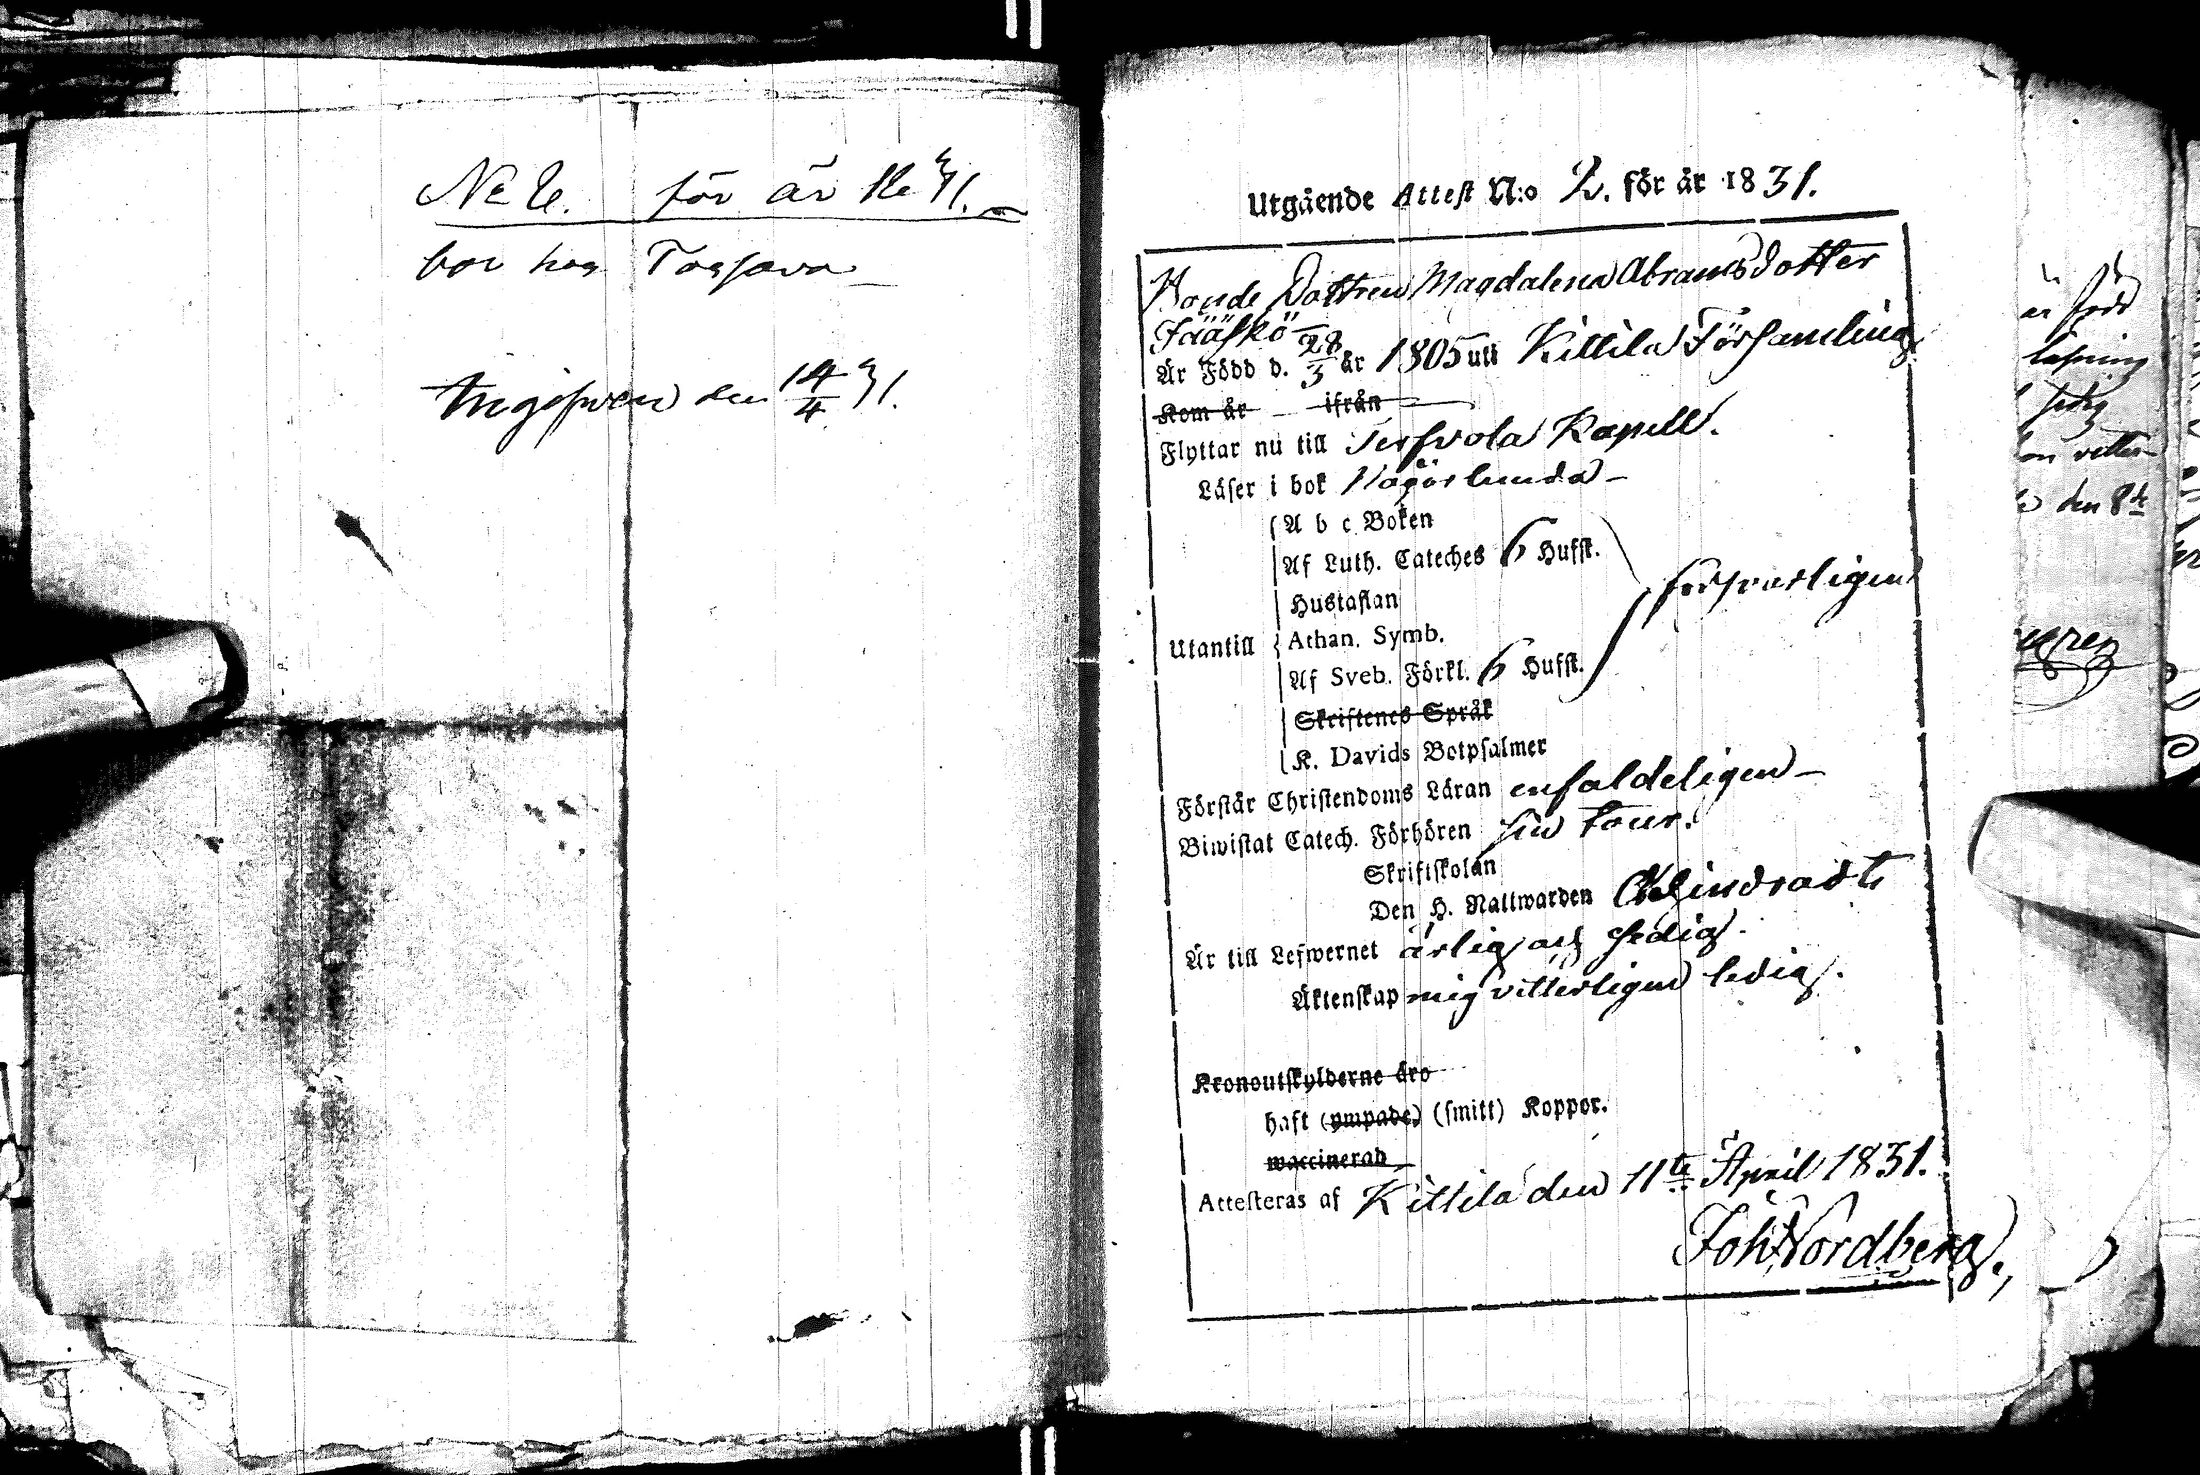 för år 1831.
bor hos
Ingifven den 14/4 31.
Utgående Attest N:o 2. för år 1831.
Bonde Dottren Magdalena Abramsdotter
Jääskö
Är Född d. 28/3 år 1805 uti Kittila Församling
Kom år ifrån
Flyttar nu till Terfvola Kapell.
Läser i bok någorlunda
A b c Boken
Af Luth. Cateches 6 Hufst.
Hustaflan
försvarligen
Utantill Athan. Symb.
Af Sveb. Förkl. 6 Hufst.
Skriftenes Språk
K. Davids Botpsalmer
Förstår Christendoms Läran enfaldeligen
Biwistat Catech. Förhören sin tour.
Skriftskolan
Den H. Nattwarden
Är till Lefwernet ärlig och sedig.
Äktenskap mig vitterligen ledig.
Kronoutskylderne äro
haft (ympade) (smitt) Koppor.
waccinerad
Attesteras af Kittila den 11te April 1831.
Joh Nordberg.
är född
läsning
den 8de